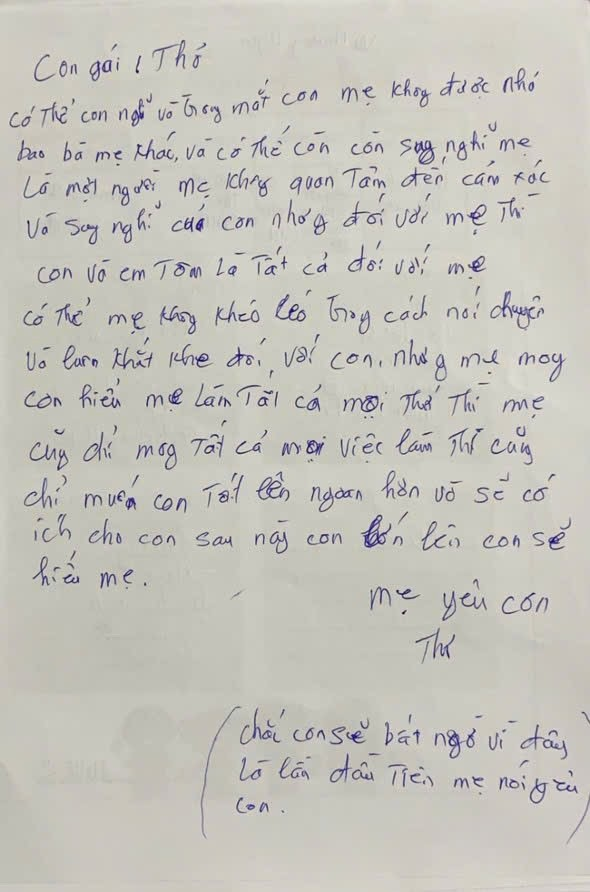 Con gái, Thơ
có thể con nghĩ và trong mắt con mẹ không được như
bao bà mẹ khác, và có thể con còn suy nghĩ mẹ
là một người mẹ không quan tâm đến cảm xúc
và suy nghĩ của con nhưng đối với mẹ thì
con và em Tôm là tất cả đối với mẹ
có thể mẹ không khéo léo trong cách nói chuyện
và luôn khắt khe đối với con, nhưng mẹ mong
con hiểu mẹ làm tất cả mọi thứ thì mẹ
cũng chỉ mong tất cả mọi việc làm thì cũng
chỉ muốn con tốt lên ngoan hơn và sẽ có
ích cho con sau này con lớn lên con sẽ
hiểu mẹ.
mẹ yêu con
Thơ
(chắc con sẽ bất ngờ vì đây
là lần đầu tiên mẹ nói yêu
con.)